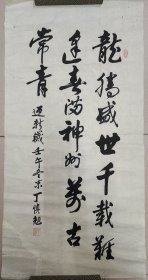 龍騰盛世千載難
逢喜满神州萬古
常青
迎新歲壬午冬末丁